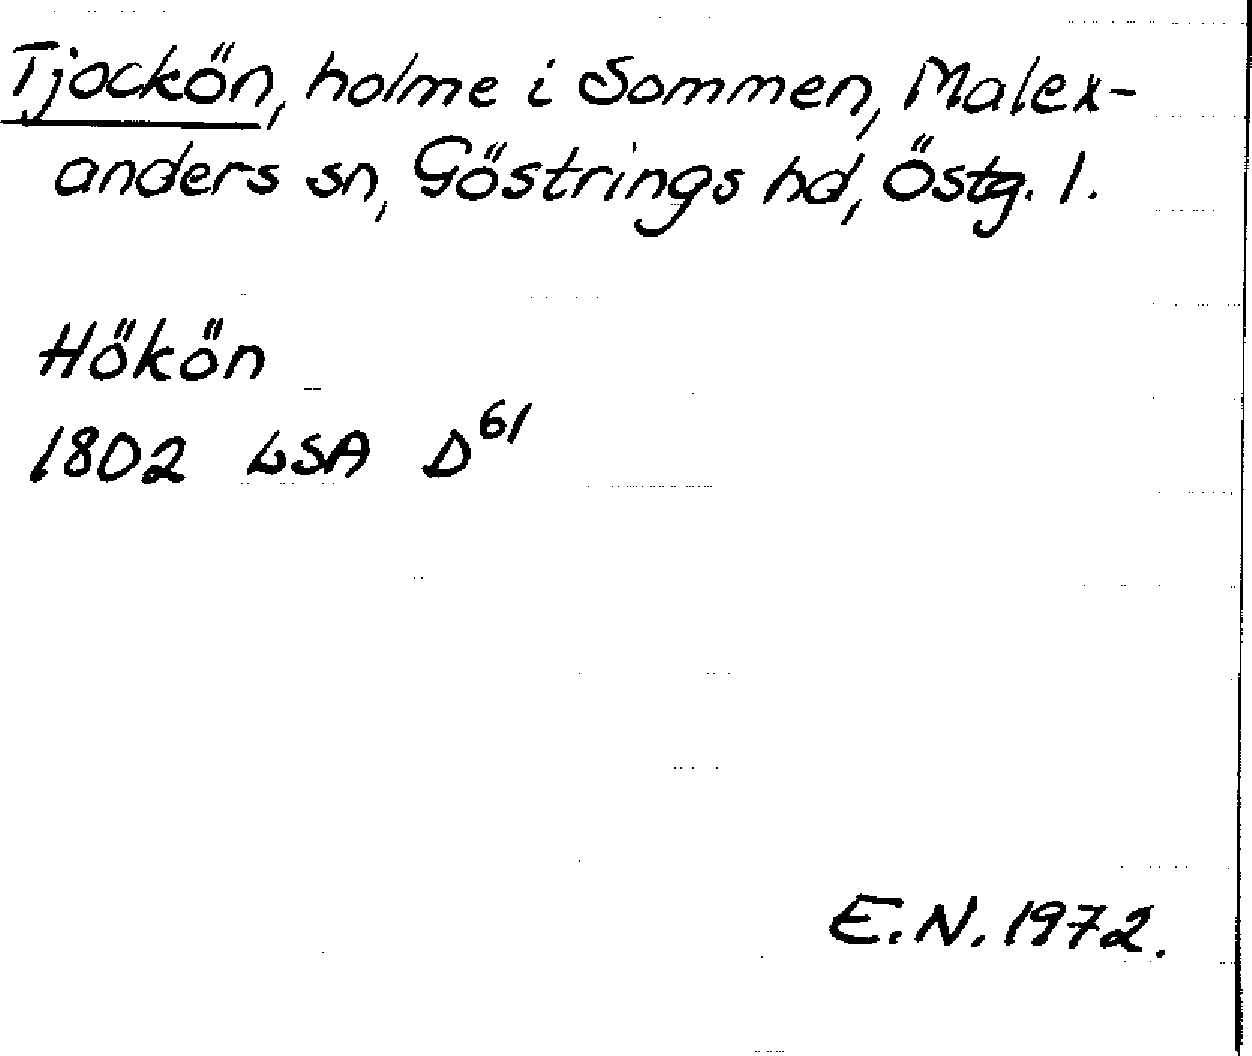 Tjockön, holme i Sommen, Malex-
anders sn, Göstrings hd, Östg. l.
Hökön
1802 LSA D⁶¹
E.N. 1972.